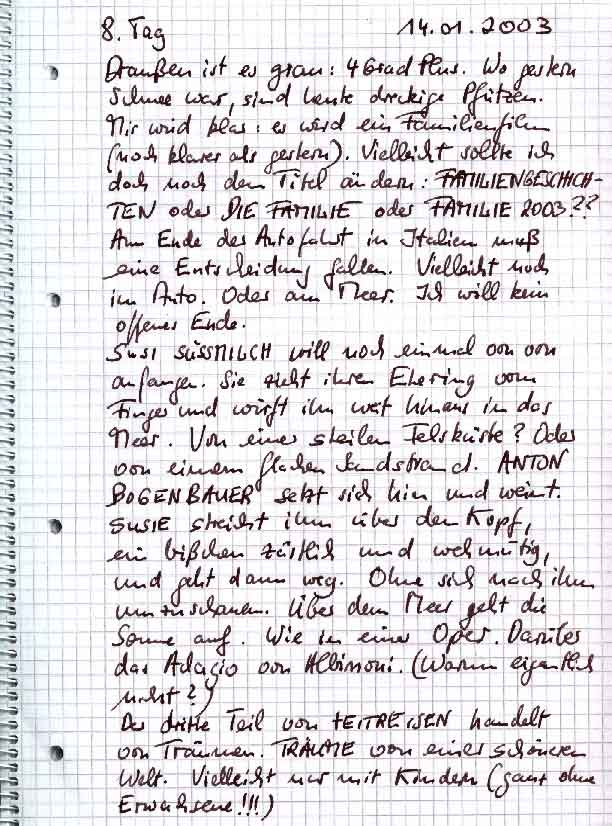 8. Tag 14.01.2003
Draußen ist es grau: 4 Grad Plus. Wo gestern
Schnee war, sind heute dreckige Pfützen.
Mir wird klar: es wird ein Familienfilm
(noch klarer als gestern). Vielleicht sollte ich
doch noch den Titel ändern: FAMILIENGESCHICH-
TEN oder DIE FAMILIE oder FAMILIE 2003??
Am Ende der Autofahrt in Italien muß
eine Entscheidung fallen. Vielleicht noch
im Auto. Oder am Meer. Ich will kein
offenes Ende.
SUSI SÜSSMILCH will noch einmal von vorn
anfangen. Sie zieht ihren Ehering vom
Finger und wirft ihn weit hinaus in das
Meer. Von einer steilen Felsküste? Oder
von einem flachen Sandstrand. ANTON
BOGENBAUER setzt sich hin und weint.
SUSIE streicht ihm über den Kopf,
ein bißchen zärtlich und wehmütig,
und geht dann weg. Ohne sich nach ihm
umzuschauen. Über dem Meer geht die
Sonne auf. Wie in einer Oper. Darüber
das Adagio von Albinoni. (Warum eigentlich
nicht?)
Der dritte Teil von ZEITREISEN handelt
von Träumen. TRÄUME von einer schöneren
Welt. Vielleicht nur mit Kindern (ganz ohne
Erwachsene!!!)